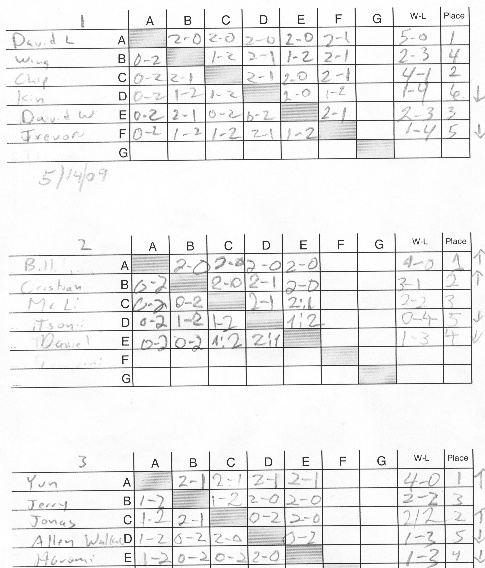 1 A B C D E F G W-L Place
David L A 2-0 2-0 2-0 2-0 2-1 5-0 1
Wing B 0-2 1-2 2-1 1-2 2-1 2-3 4
Chip C 0-2 2-1 2-1 2-0 2-1 4-1 2
Kin D 0-2 1-2 1-2 2-0 1-2 1-4 6 ↓
David W E 0-2 2-1 0-2 0-2 2-1 2-3 3
Trevor F 0-2 1-2 1-2 2-1 1-2 1-4 5 ↓
G
5/14/09
2 A B C D E F G W-L Place
Bill A 2-0 2-0 2-0 2-0 4-0 1 ↑
Cristian B 0-2 2-0 2-1 2-0 3-1 2 ↑
Mr Li C 0-2 0-2 2-1 2:1 2-2 3
D 0-2 1-2 1-2 1:2 0-4 5 ↓
Daniel E 0-2 0-2 1:2 2:1 1-3 4 ↓
F
G
3 A B C D E F G W-L Place
Yun A 2-1 2-1 2-1 2-1 4-0 1 ↑
Jerry B 1-2 1-2 2-0 2-0 2-2 3
Jonas C 1-2 2-1 0-2 2-0 2/2 2 ↑
Allen D 1-2 0-2 2-0 0-2 1-3 5 ↓
E 1-2 0-2 0-2 2-0 1-3 4 ↓